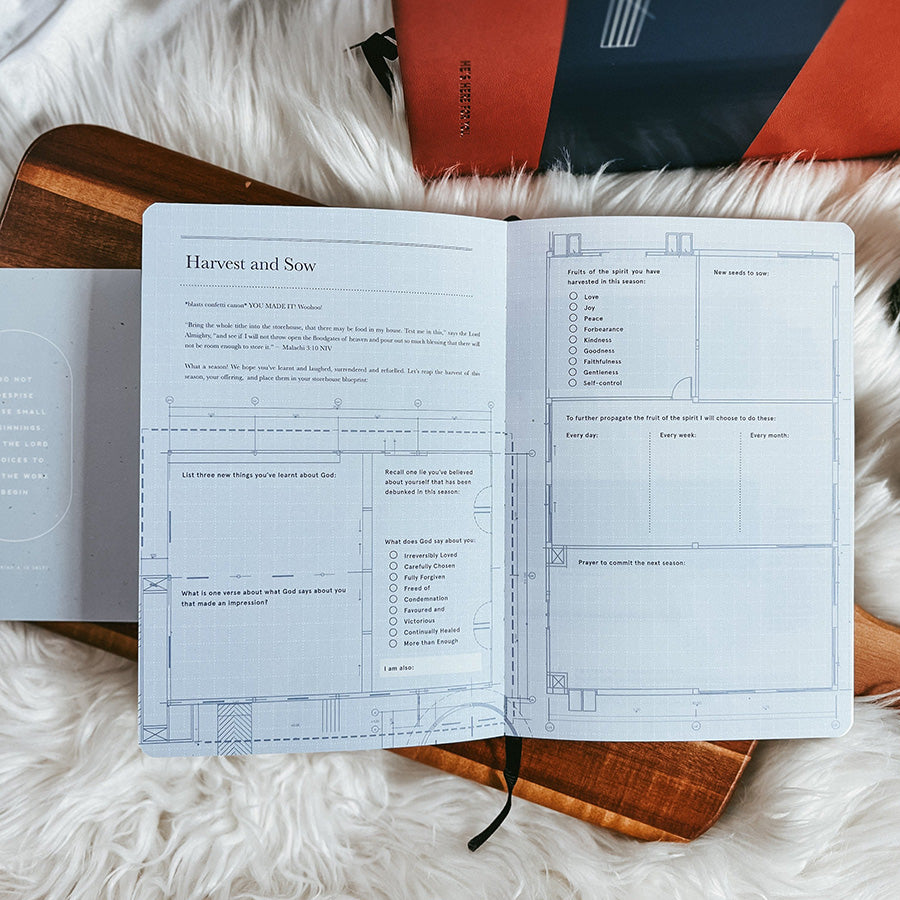 HE'S HERE FOR
NOT
DESPISE
SMALL
THE LORD
TO
THE WORK
BEGIN
Harvest and Sow
*blasts confetti canon* YOU MADE IT! Woohoo!
"Bring the whole tithe into the storehouse, that there may be food in my house. Test me in this," says the Lord
Almighty, "and see if I will not throw open the floodgates of heaven and pour out so much blessing that there will
not be room enough to store it." – Malachi 3:10 NIV
What a season! We hope you've learnt and laughed, surrendered and refuelled. Let's reap the harvest of this
season, your offering, and place them in your storehouse blueprint:
List three new things you've learnt about God:
What is one verse about what God says about you
that made an impression?
Recall one lie you've believed
about yourself that has been
debunked in this season:
What does God say about you:
Irreversibly Loved
Carefully Chosen
Fully Forgiven
Freed of
Condemnation
Favoured and
Victorious
Continually Healed
More than Enough
I am also:
Fruits of the spirit you have
harvested in this season:
Love
Joy
Peace
Forbearance
Kindness
Goodness
Faithfulness
Gentleness
Self-control
New seeds to sow:
To further propagate the fruit of the spirit I will choose to do these:
Every day:
Every week:
Every month:
Prayer to commit the next season: